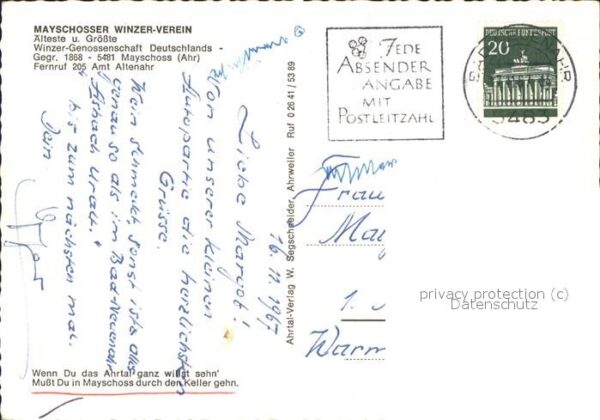 MAYSCHOSSER WINZER-VEREIN
Älteste u. Größte
Winzer-Genossenschaft Deutschlands -
Gegr. 1868 - 5481 Mayschoss (Ahr)
Fernruf 205 Amt Altenahr
JEDE
ABSENDER
ANGABE
MIT
POSTLEITZAHL
DEUTSCHE BUNDESPOST
20
5483
16. 11. 1967
Liebe Margot!
Von unserer kleinen
Autopartie die herzlichsten
Grüsse.
Wein schmeckt, sonst ist alles
genauso als im Bad-Neuenahr
Asbach Uralt.
bis zum nächsten mal.
Dein
Ahrtal-Verlag W. Segschneider, Ahrweiler Ruf 0 26 41 / 53 89
Frau
1.
privacy protection (c)
Datenschutz
Wenn Du das Ahrtal ganz willst sehn'
Mußt Du in Mayschoss durch den Keller gehn.